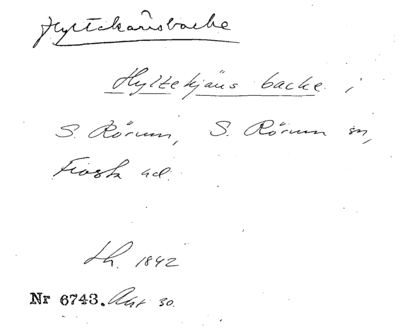 Hyltekänsbacke
Hyltekjäns backe i
S. Rörum, S. Rörum sn,
Frosta hd.
Lh. 1842
Nr 6743. Akt 30.